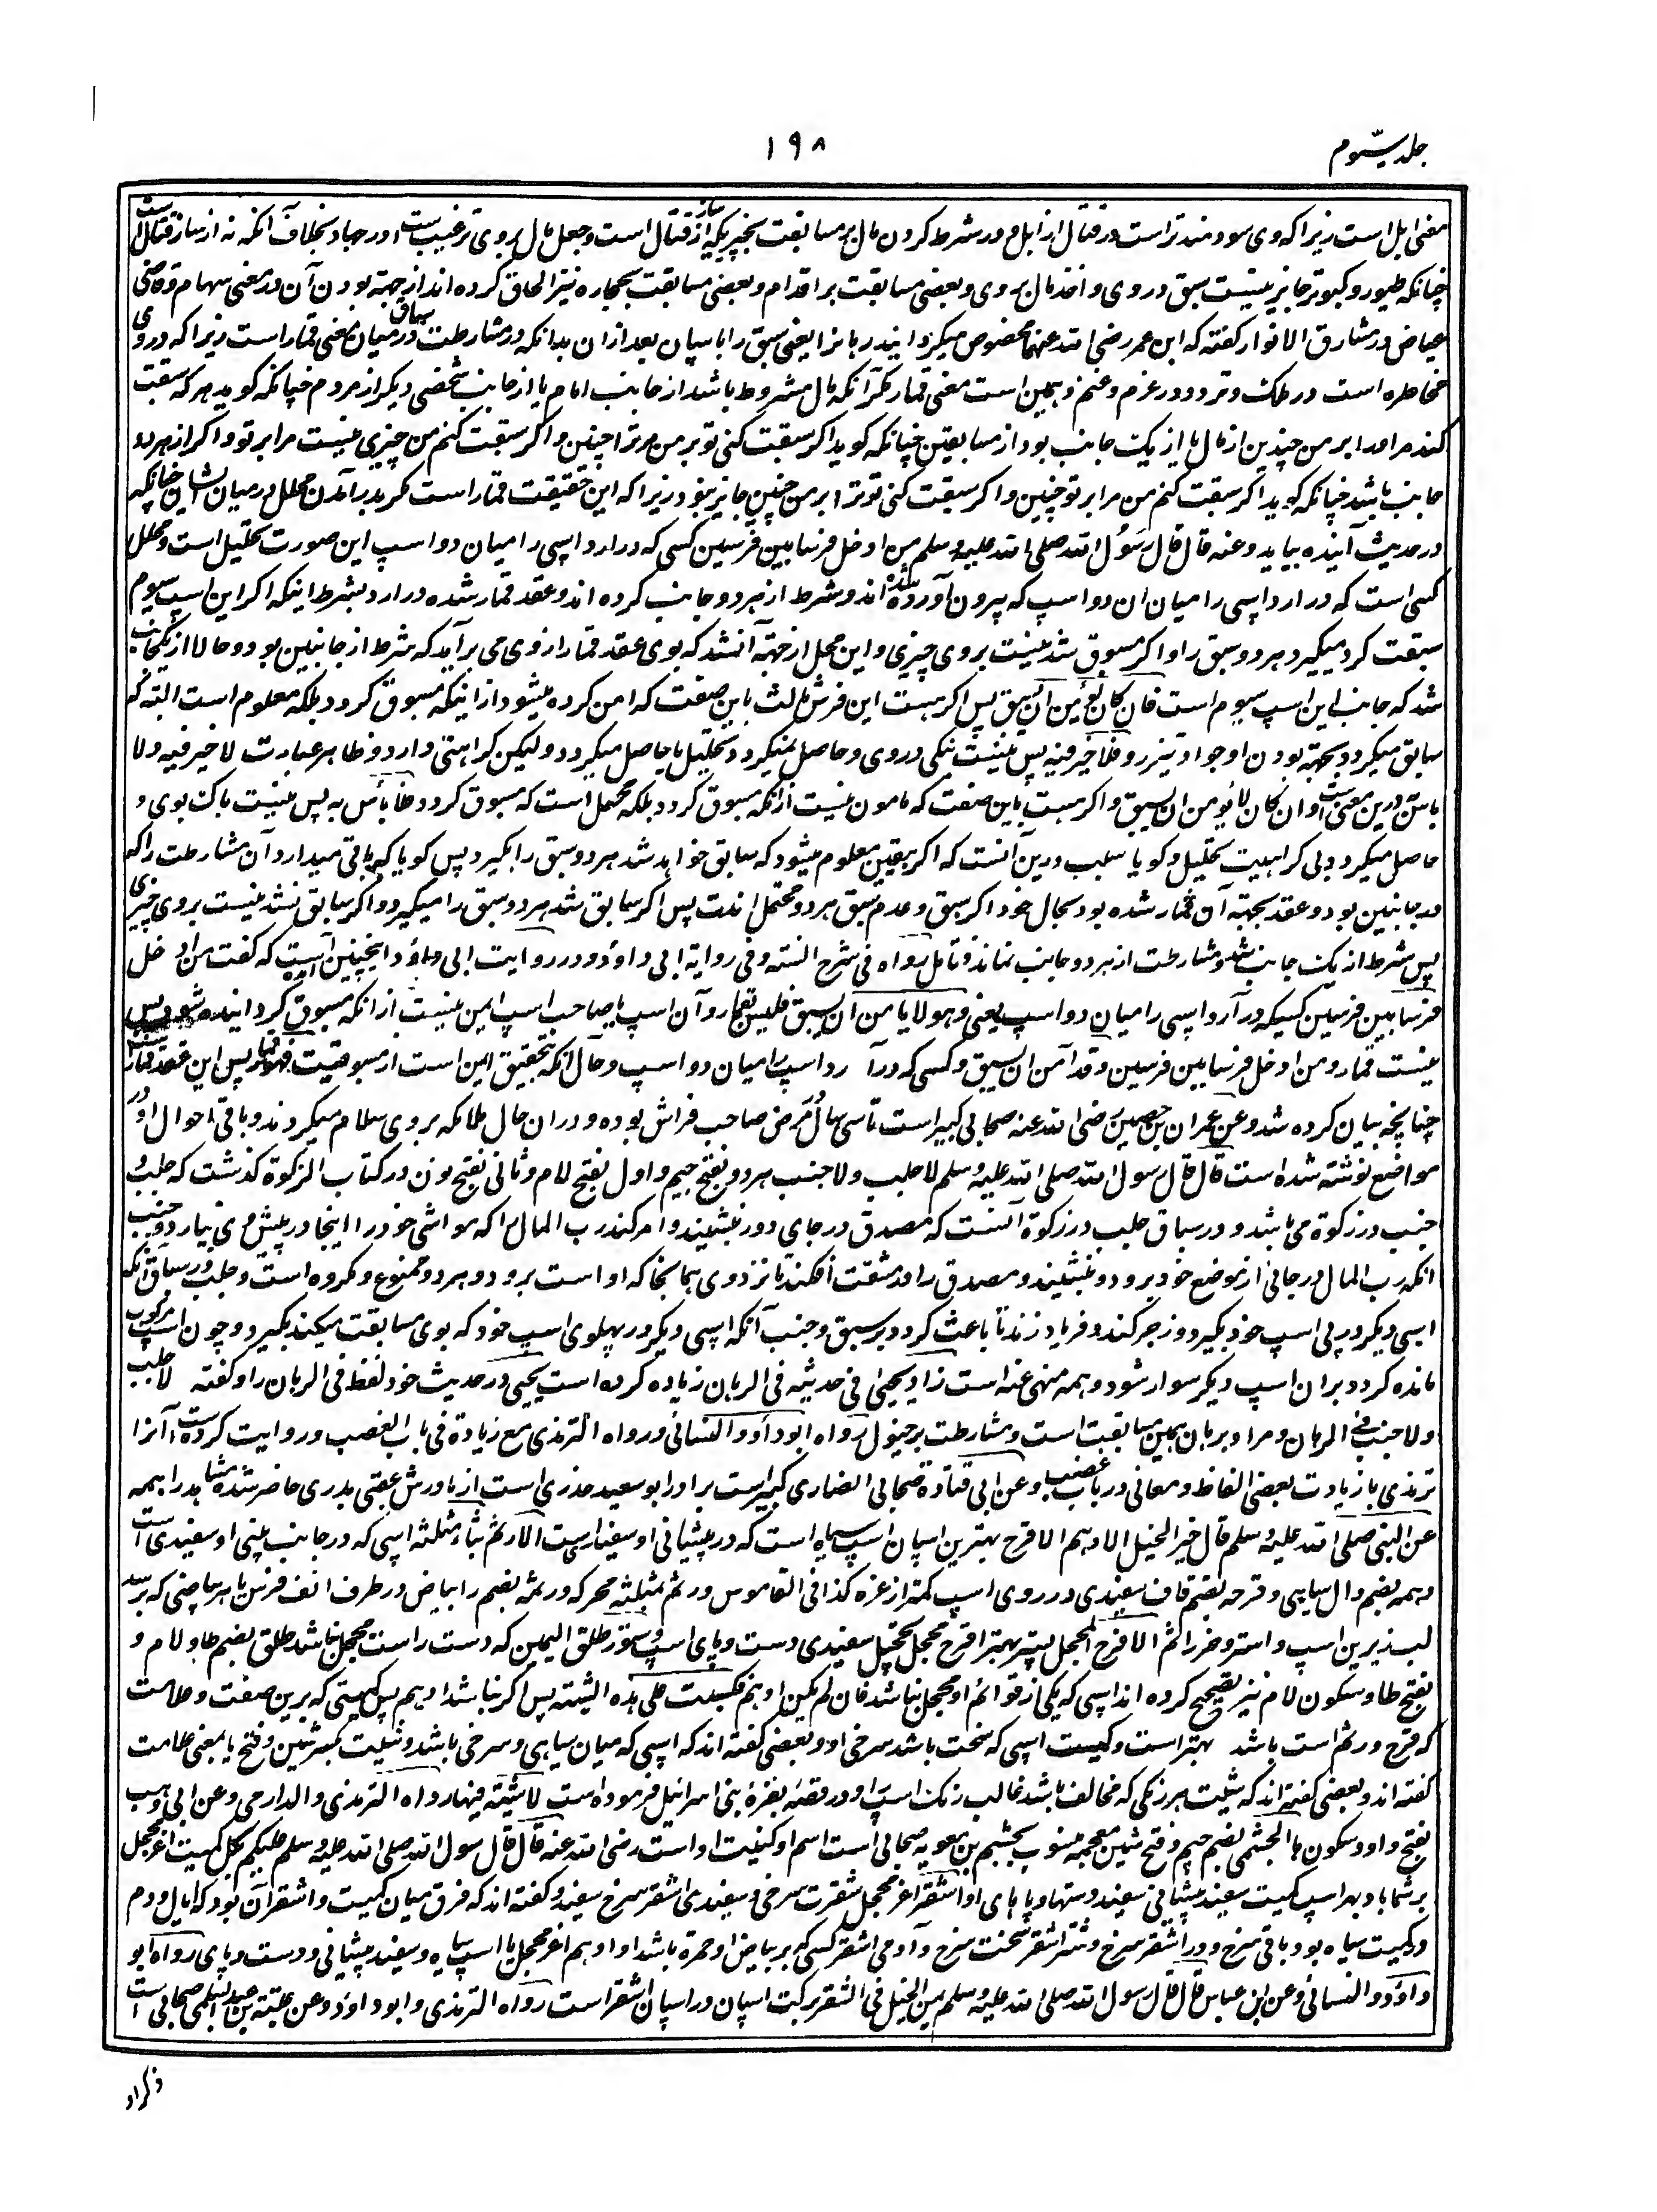 جلد سیّوم
۱۹۸
معنی ابل است زیرا که وی سودمندتر است در قتال از ابل و در شرط کردن مال بر مسابقت بچیزیکه از ساز قتال است و جعل مال بروی ترغیب است در جهاد بخلاف آنکه نه از ساز قتال است
چنانکه طیور و کبوتر جایز نیست سبق در وی و اخذ مال بروی و بعضی مسابقت بر اقدام و بعضی مسابقت بحجاره نیز الحاق کرده اند از جهة بودن آن در معنی سهام و قاضی
عیاض در مشارق الانوار کفته که ابن عمر رضی الله عنهما مخصوص میکردانید رهانرا یعنی سبق را باسپان بعد ازان بدانکه در مشارطت در میان معنی قمار است زیرا که در وی
مخاطره است در ملک و تردد در غرم و غنم و همین است معنی قمار مکر آنکه مال مشروط باشد از جانب امام یا از جانب شخصی دیکر از مردم چنانکه کوید هر که سبقت
کند مر او را بر من چندین از مال یا از یک جانب بود از مسابقین چنانکه کوید اکر سبقت کنی تو بر من مر ترا چنین و اکر سبقت کنم من چیزی نیست مرا بر تو و اکر از هر دو
جانب باشد چنانکه کوید اکر سبقت کنم من مرا بر تو چنین و اکر سبقت کنی تو ترا بر من چنین جایز نبود زیرا که این حقیقت قمار است مکر بدر آمدن محلل در میان ایشان چنانکه
در حدیث آینده بیاید و عنه قال قال رسول الله صلی الله علیه وسلم من ادخل فرسا بین فرسین کسی که در ارد اسپی را میان دو اسپ این صورت تحلیل است و محلل
کسی است که در ارد اسپی را میان ان دو اسپ که بیرون آورده شده اند و شرط از هر دو جانب کرده اند و عقد قمار شده در ارد بشرط اینکه اکر این اسپ سیوم
سبقت کرد میکیرد هر دو سبق را و اکر مسبوق شد نیست بروی چیزی و این محلل از جهة آنشد که بوی عقد قمار از وی می برآید که شرط از جانبین بود و حالا از یکجانب
شد که جانب این اسپ سیوم است فان کان یؤمن ان یسبق پس اکر هست این فرس ثالث باین صفت که امن کرده میشود از اینکه مسبوق کردد بلکه معلوم است البته که
سابق میکردد بجهة بودن او جواد تیز رو فلا خیر فیه پس نیست نیکی در وی و حاصل نمیکردد تحلیل یا حاصل میکردد ولیکن کراهتی دارد و ظاهر عبارت لا خیر فیه و لا
باس درین معنی است و ان کان لا یؤمن ان یسبق و اکر هست باین صفت که مامون نیست از انکه مسبوق کردد بلکه محتمل است که مسبوق کردد فلا بأس به پس نیست باک بوی و
حاصل میکردد بی کراهیت تحلیل و کویا سبب درین آنست که اکر بیقین معلوم میشود که سابق خواهد شد هر دو سبق را بکیرد پس کویا که باقی میدارد آن مشارطت را که
در جانبین بود و عقد بجهة آن قمار شده بود بحال خود اکر سبق و عدم سبق هر دو محتمل اند پس اکر سابق شد هر دو سبق را میکیرد و اکر سابق نشد نیست بروی چیزی
پس شرط از یک جانب شد و مشارطت از هر دو جانب نماند فتامل رواه فی شرح السنة و فی روایة ابی داود و در روایت ابی داود اینچنین آمده است که کفت من ادخل
فرسا بین فرسین کسیکه در آرد اسپی را میان دو اسپ یعنی و هو لا یامن ان یسبق فلیس بقمار و آن اسپ یا صاحب اسپ امن نیست از انکه مسبوق کردانیده شود پس
نیست قمار و من ادخل فرسا بین فرسین و قد امن ان یسبق و کسی که درآ رد اسپ را میان دو اسپ و حال آنکه بتحقیق امین است از مسبوقیت فهو قمار پس این عقد قمار است
چنانچه بیان کرده شد و عن عمران بن حصین رضی الله عنه صحابی کبیر است تا سی سال از مرض صاحب فراش بوده و دران حال ملائکه بروی سلام میکردند و باقی احوال او در
مواضع نوشته شده است قال قال رسول الله صلی الله علیه وسلم لا جلب و لا جنب هر دو بفتح جیم و اول بفتح لام و ثانی بفتح نون در کتاب الزکوة کذشت که جلب و
جنب در زکوة می باشد و در سباق جلب در زکوة آنست که مصدق در جای دور نشیند و امر کند رب المال را که مواشی خود را اینجا در پیش وی بیارد و جنب
انکه رب المال در جائی از موضع خود برود و نشیند و مصدق را در مشقت افکند تا نزد وی بهمانجا که او است برود و هر دو ممنوع و مکروه است و جلب در سباق آنکه
اسپی دیکر در پی اسپ خود بکیرد و زجر کند و فریاد زند تا باعث کردد بر سبق و جنب آنکه اسپی دیکر در پهلوی اسپ خود که بوی مسابقت میکند بکیرد و چون اسپ مرکوب
مانده کردد بران اسپ دیکر سوار شود و همه منهی عنه است زاد یحیی فی حدیثه فی الرهان زیاده کرده است یحیی در حدیث خود لفظ فی الرهان را و کفته لا جلب
و لا جنب فی الرهان و مراد برهان همین مسابقت است و مشارطت بر خیول رواه ابوداود و النسائی و رواه الترمذی مع زیادة فی باب الغصب و روایت کرده است آنرا
ترمذی با زیادت بعضی الفاظ و معانی در باب غصب و عن ابی قتادة صحابی انصاری کبیر است برادر ابو سعید خدری است از مادرش عقبی بدری حاضر شده مشاهد را همه
عن النبی صلی الله علیه وسلم قال خیر الخیل الادهم الاقرح بهترین اسپان اسپ سیاه است که در پیشانی او سفیدی است الارثم بثاء مثلثه اسپی که در جانب بینی او سفیدی است
دهمه بضم دال سیاهی و قرحه بضم قاف سفیدی در روی اسپ کمتر از غره کذا فی القاموس و رثم بمثلثه محرکه و رثمه بضم را بیاض در طرف انف فرس یا هر بیاضی که برسد
لب زیرین اسپ و استر و خر را ثم الاقرح المحجل پستر بهتر اقرح محجل تحجیل سفیدی دست و پای اسپ و ستور طلق الیمین که دست راست محجل نباشد طلق بضم طا و لام و
بفتح طا و سکون لام نیز تصحیح کرده اند اسپی که یکی از قوائم او محجل نباشد فان لم یکن ادهم فکمیت علی هذه الشیة پس اکر نباشد ادهم پس کمیتی که برین صفت و علامت
که قرح و رثم است باشد بهتر است و کمیت اسپی که سخت باشد سرخی او و بعضی کفته اند که اسپی که میان سیاهی و سرخی باشد و شیت بکسر شین و فتح یا بمعنی علامت
کفته اند و بعضی کفته اند که شیت هر رنکی که مخالف باشد غالب رنک اسپ را و در قصۀ بقرۀ بنی اسرائیل فرموده است لا شیة فیها رواه الترمذی و الدارمی و عن ابی وهب
بفتح واو و سکون ها الجشمی بضم جیم و فتح شین معجمه منسوب بجشم بن معویه صحابی است اسم او کنیت او است رضی الله عنه قال قال رسول الله صلی الله علیه وسلم علیکم بکل کمیت اغر محجل
بر شما باد بهر اسپ کمیت سفید پیشانی سفید دستها و پاهای او اشقر اغر محجل شقرت سرخی و سفیدی اشقر سرخ سفید و کفته اند که فرق میان کمیت و اشقر آن بود که یال و دم
در کمیت سیاه بود باقی سرخ و در اشقر سرخ و شتر اشقر سخت سرخ و آدمی اشقر کسی که بر بیاض او حمرة باشد او ادهم اغر محجل یا اسپ سیاه و سفید پیشانی و دست و پای رواه ابو
داود و النسائی و عن ابن عباس قال قال رسول الله صلی الله علیه وسلم یمن الخیل فی الشقر برکت اسپان در اسپان اشقر است رواه الترمذی و ابوداود و عن عتبة بن عبد السلمی صحابی است